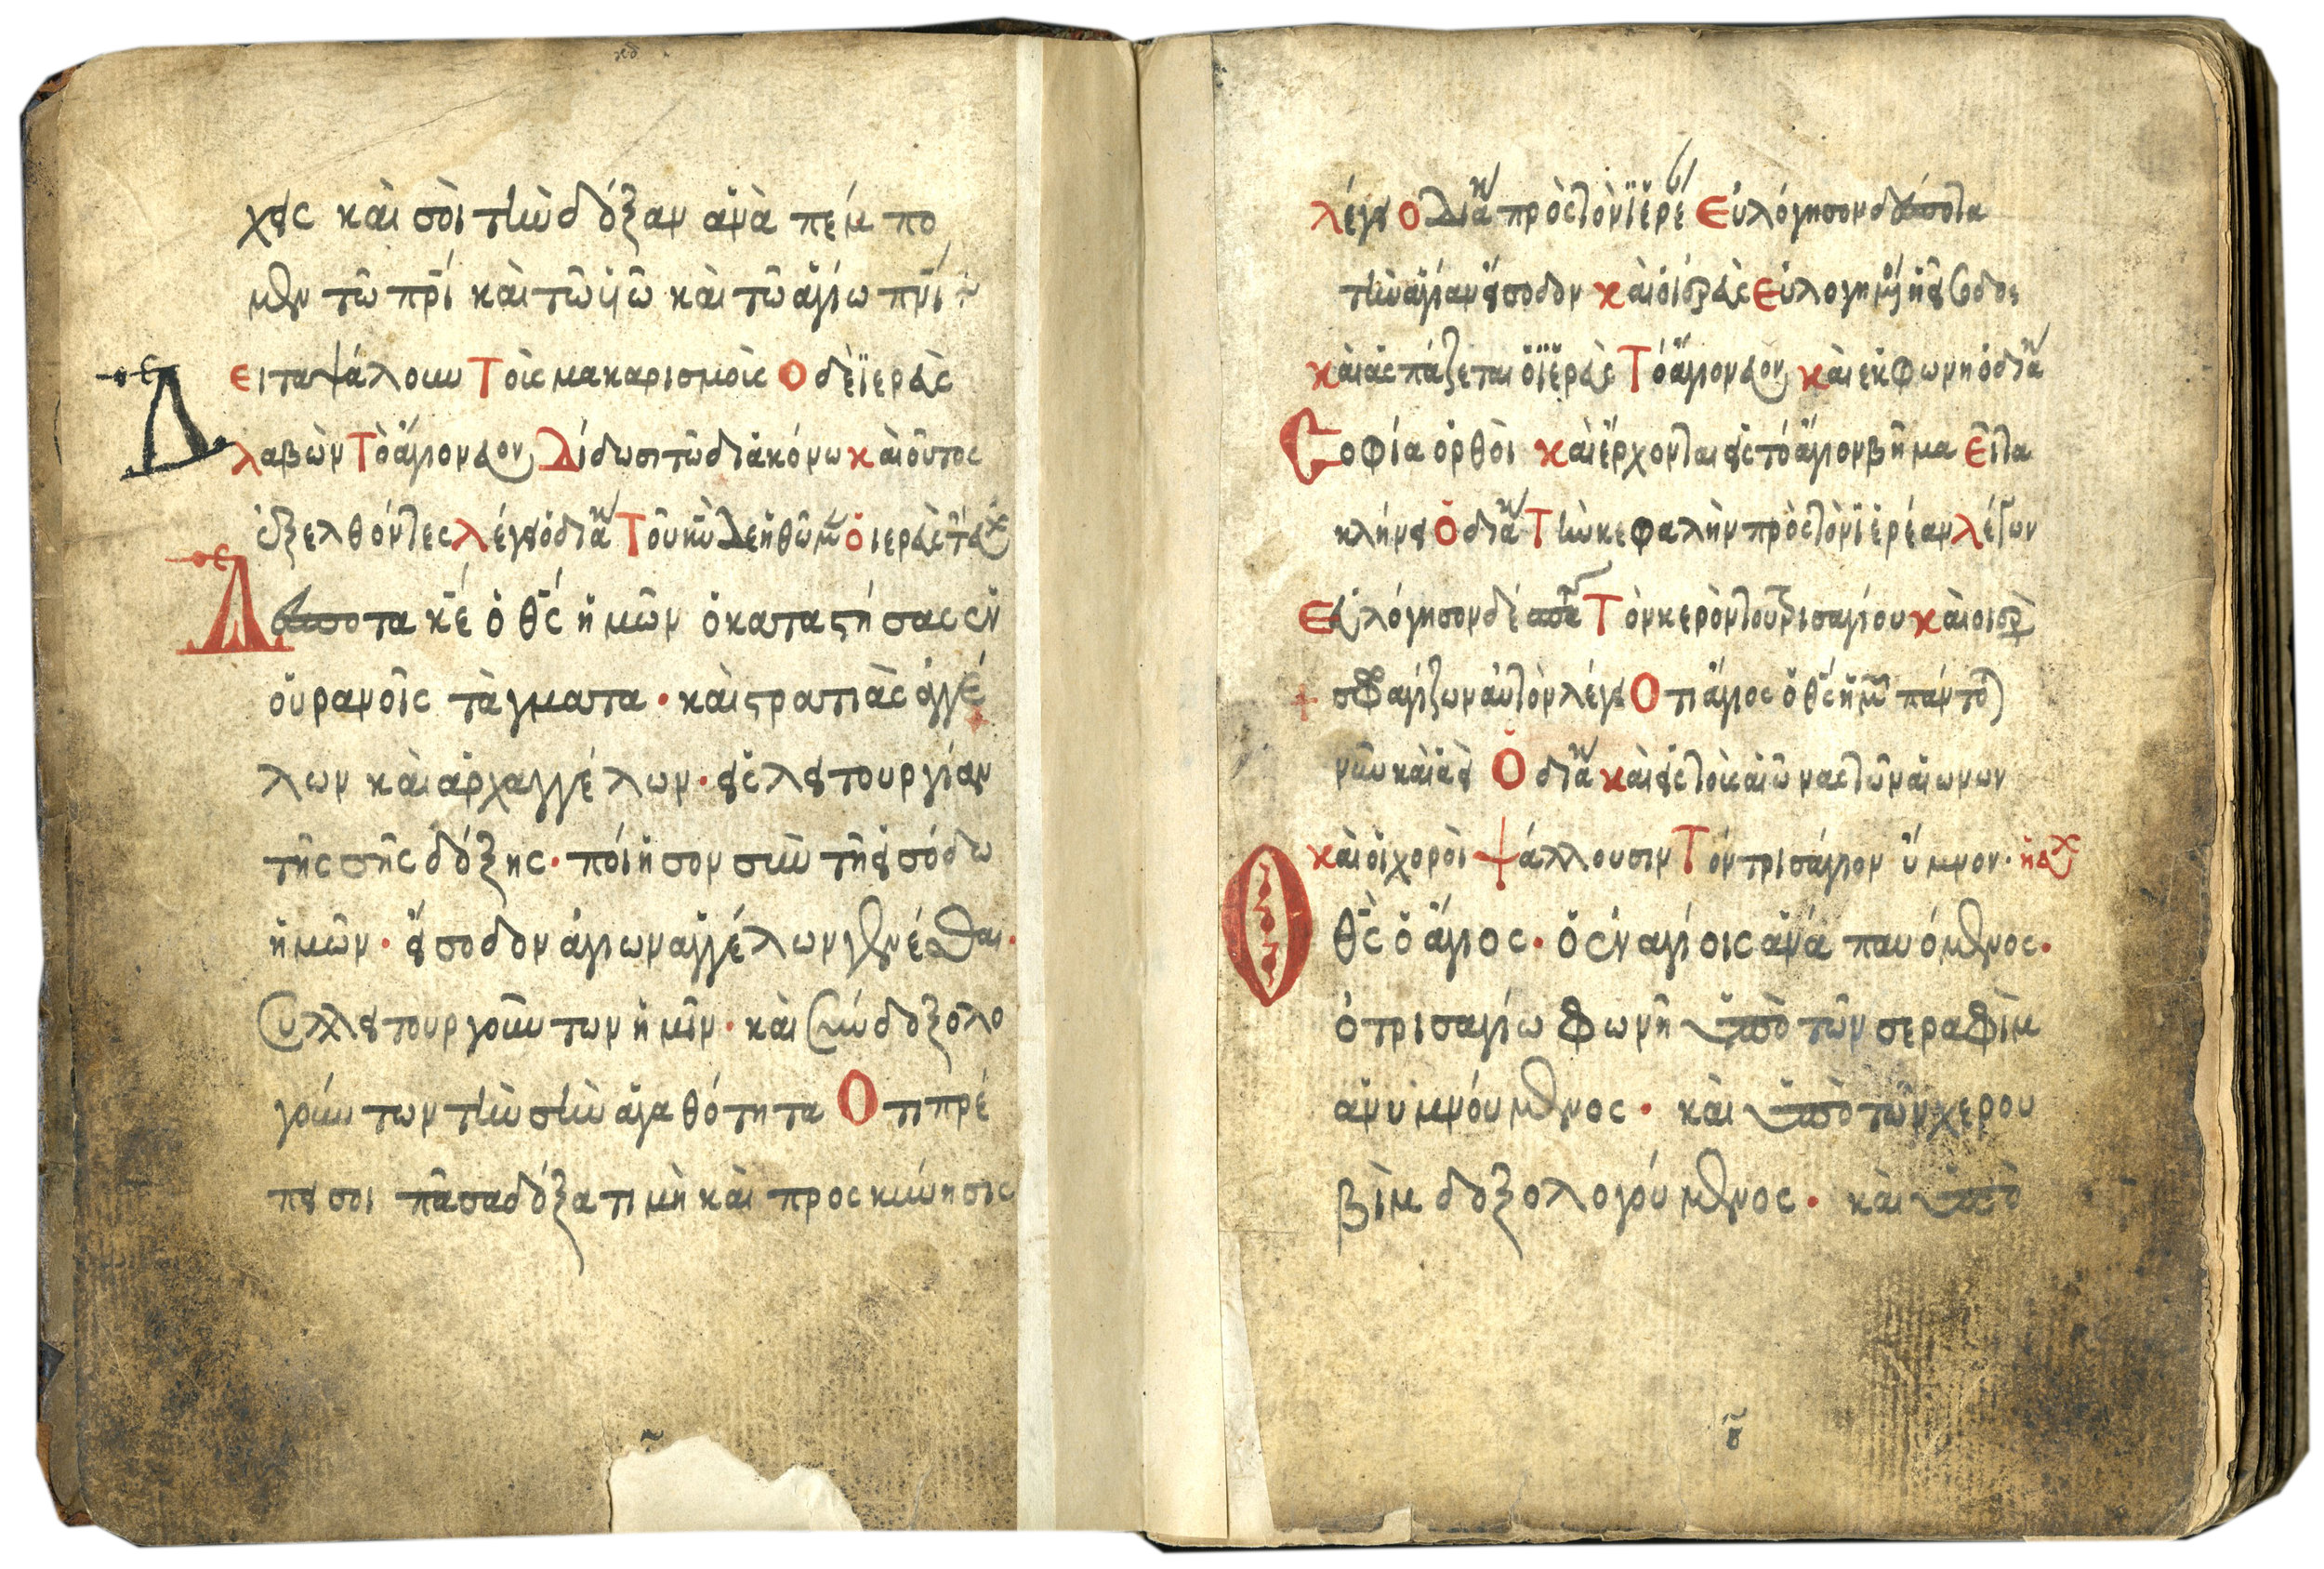 κδ
χεις καὶ σοὶ τὴν δόξαν ἀναπέμπο
μεν τῶ πρ̅ὶ καὶ τῶ υἱῶ καὶ τῶ ἁγίω πν̅ι
εἶτα ψάλουν Τοὶς μακαρισμοὶς Ὁ δὲ ἱερεὺς
λαβὼν Τὸ ἅγιον εὐον Δίδωσι τῶ διακόνω καὶ οὕτος
ἐξελθόντες λέγει ὁ διακ Τοῦ κυ̅ δεηθῶμ ὁ ἱερεὺς
Δέσποτα κ̅ε ὁ θ̅ς ἡμῶν ὁ καταστήσας ἐν
οὐρανοῖς τὰγματα · καὶ στρατιὰς ἀγγέ
λων καὶ ἀρχαγγέλων · εἰς λειτουργίαν
τῆς σῆς δόξης · ποίησον σὺν τῆ εἰσόδω
ἡμῶν · εἴσοδον ἁγίων ἀγγέλων γενέσθαι ·
συλλειτουργούντων ἡμῖν · καὶ συνδοξολο
γούντων τὴν σὴν ἀγαθότητα Ὅτι πρέ
πει σοι πᾶσα δόξα τιμὴ καὶ προσκύνησις
λέγει ὁ διακ πρὸς τὸν ἱερέ Εὐλόγησον δέσποτα
τὴν ἁγίαν εἴσοδον καὶ ὁ ἱερεὺς Εὐλογημ ἡ εἴσοδος
καὶ ἀσπάζεται ὁ ἱερεὺς Τὸ ἅγιον εὐον καὶ ἐκφωνη ὁ διακ
Σοφία ὀρθοὶ καὶ ἔρχονται εἰς τὸ ἅγιον βῆμα Εἶτα
κλήνει Ὁ διακ Τὴν κεφαλὴν πρὸς τὸν ἱερέαν λέγων
Εὐλόγησον δέσποτα Τὸν κερὸν τοῦ τρισαγίου καὶ ὁ ἱερ
σφαγίζων αὐτὸν λέγει Ὅτι ἅγιος ὁ θ̅ς ἡμῶ πάντο
νῦν καὶ ἀεὶ Ὁ διακ καὶ εἰς τοὺς αἰῶνας τῶν αἰώνων
καὶ οἱ χοροὶ ψάλλουσιν Τὸν τρισάγιον ὕμνον · ἡ εὐχ
Ὁ θ̅ς ὁ ἅγιος · ὁ ἐν ἁγίοις ἀναπαυόμενος ·
ὁ τρισαγίω φωνῆ ὑπὸ τῶν σεραφὶμ
ἀνυμνούμενος · καὶ ὑπὸ τῶν χερου
βὶμ δοξολογούμενος · καὶ ὑπὸ